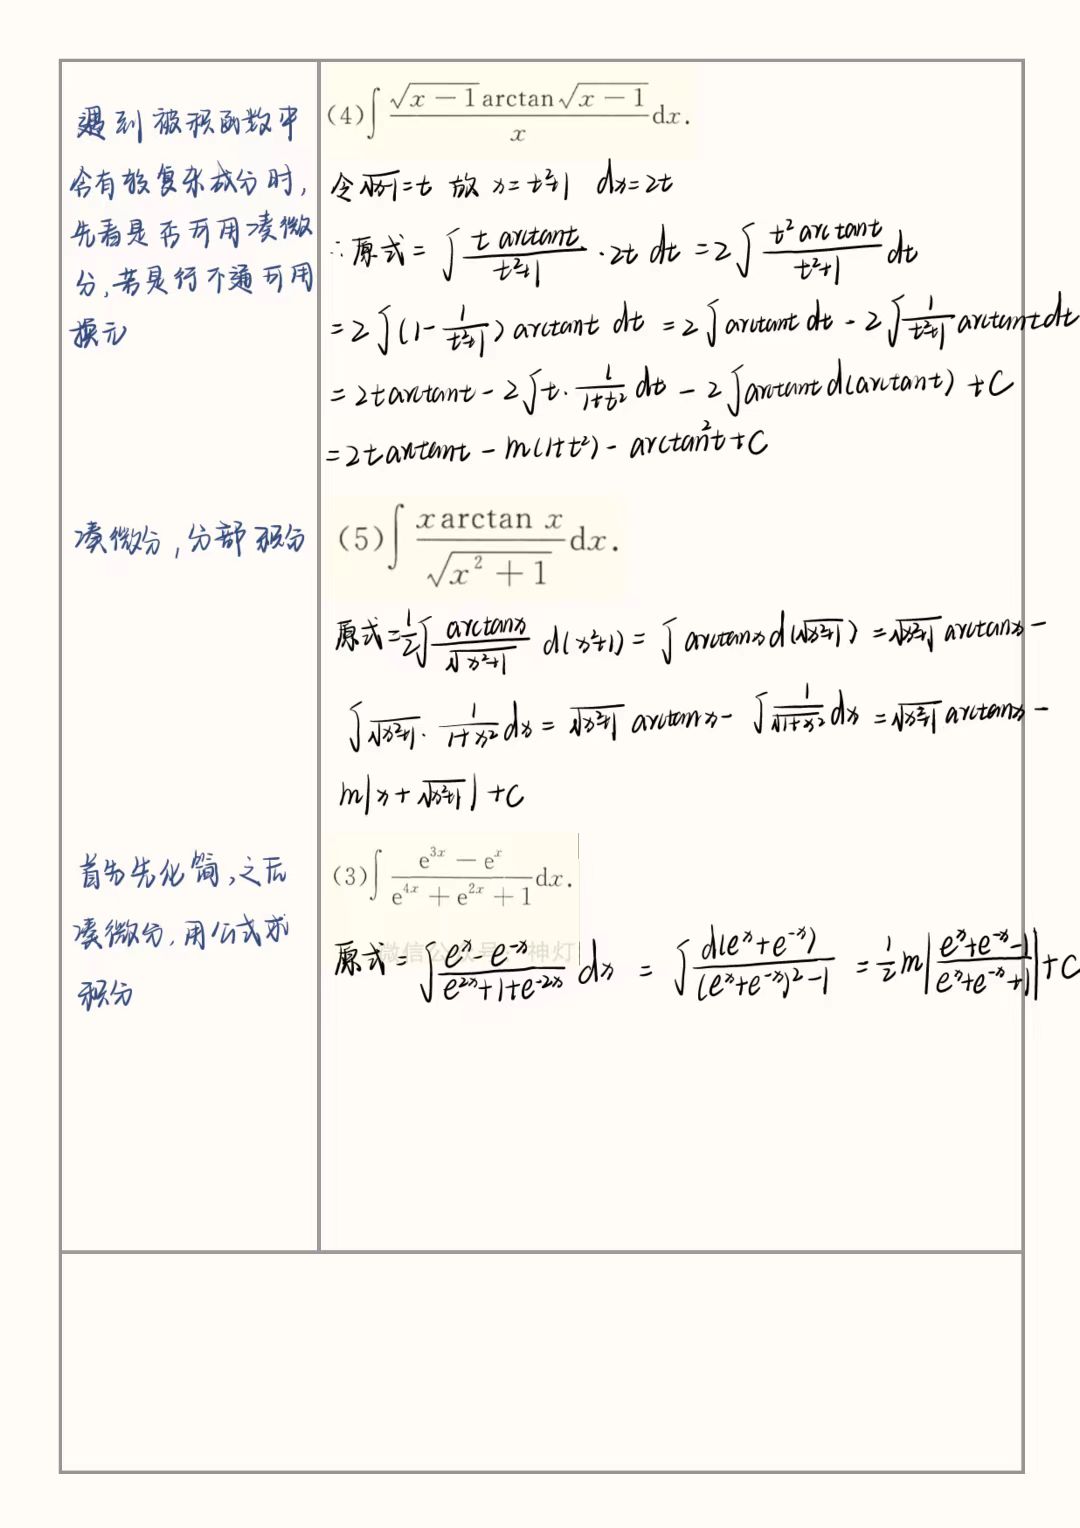 遇到被积函数中
含有较复杂成分时,
先看是否可用凑微
分,若是行不通可用
换元
(4)∫ √(x-1) arctan√(x-1) / x dx.
令√(x-1)=t 故 x=t²+1 dx=2t
∴原式=∫ t arctant/(t²+1) ·2t dt =2∫ t² arctant/(t²+1) dt
=2∫(1-1/(t²+1)) arctant dt =2∫arctant dt-2∫1/(t²+1) arctant dt
=2tarctant-2∫t·1/(1+t²) dt -2∫arctant d(arctant) +C
=2tarctant-ln(1+t²)-arctan²t+C
凑微分,分部积分
(5)∫ x arctan x / √(x²+1) dx.
原式=1/2∫ arctanx/√(x²+1) d(x²+1)=∫arctanx d(√(x²+1))=√(x²+1) arctanx-
∫√(x²+1)·1/(1+x²) dx=√(x²+1) arctanx-∫1/√(1+x²) dx=√(x²+1) arctanx-
ln|x+√(x²+1)|+C
首先先化简,之后
凑微分,用公式求
积分
(3)∫ (e³ˣ-eˣ)/(e⁴ˣ+e²ˣ+1) dx.
原式=∫ (eˣ-e⁻ˣ)/(e²ˣ+1+e⁻²ˣ) dx =∫ d(eˣ+e⁻ˣ)/((eˣ+e⁻ˣ)²-1) =1/2 ln|(eˣ+e⁻ˣ-1)/(eˣ+e⁻ˣ+1)|+C